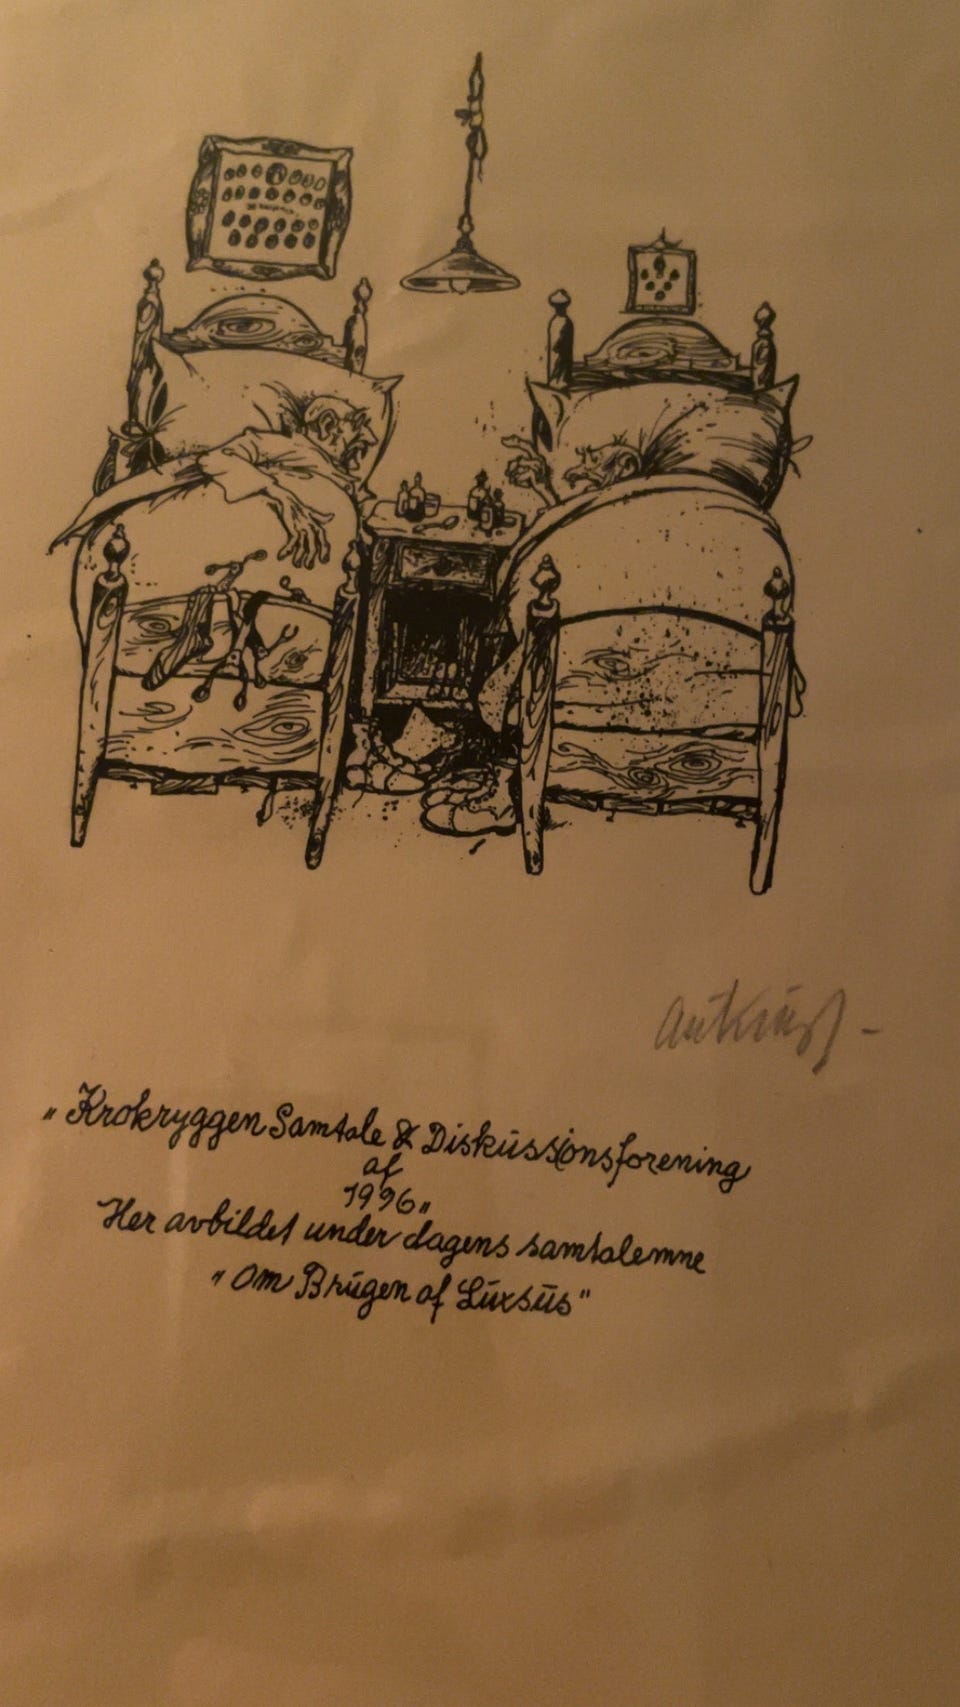 „ Krokryggen Samtale & Diskussionsforening
af
1996 "
Her avbildet under dagens samtalemne
" Om Brugen af Luxsus "